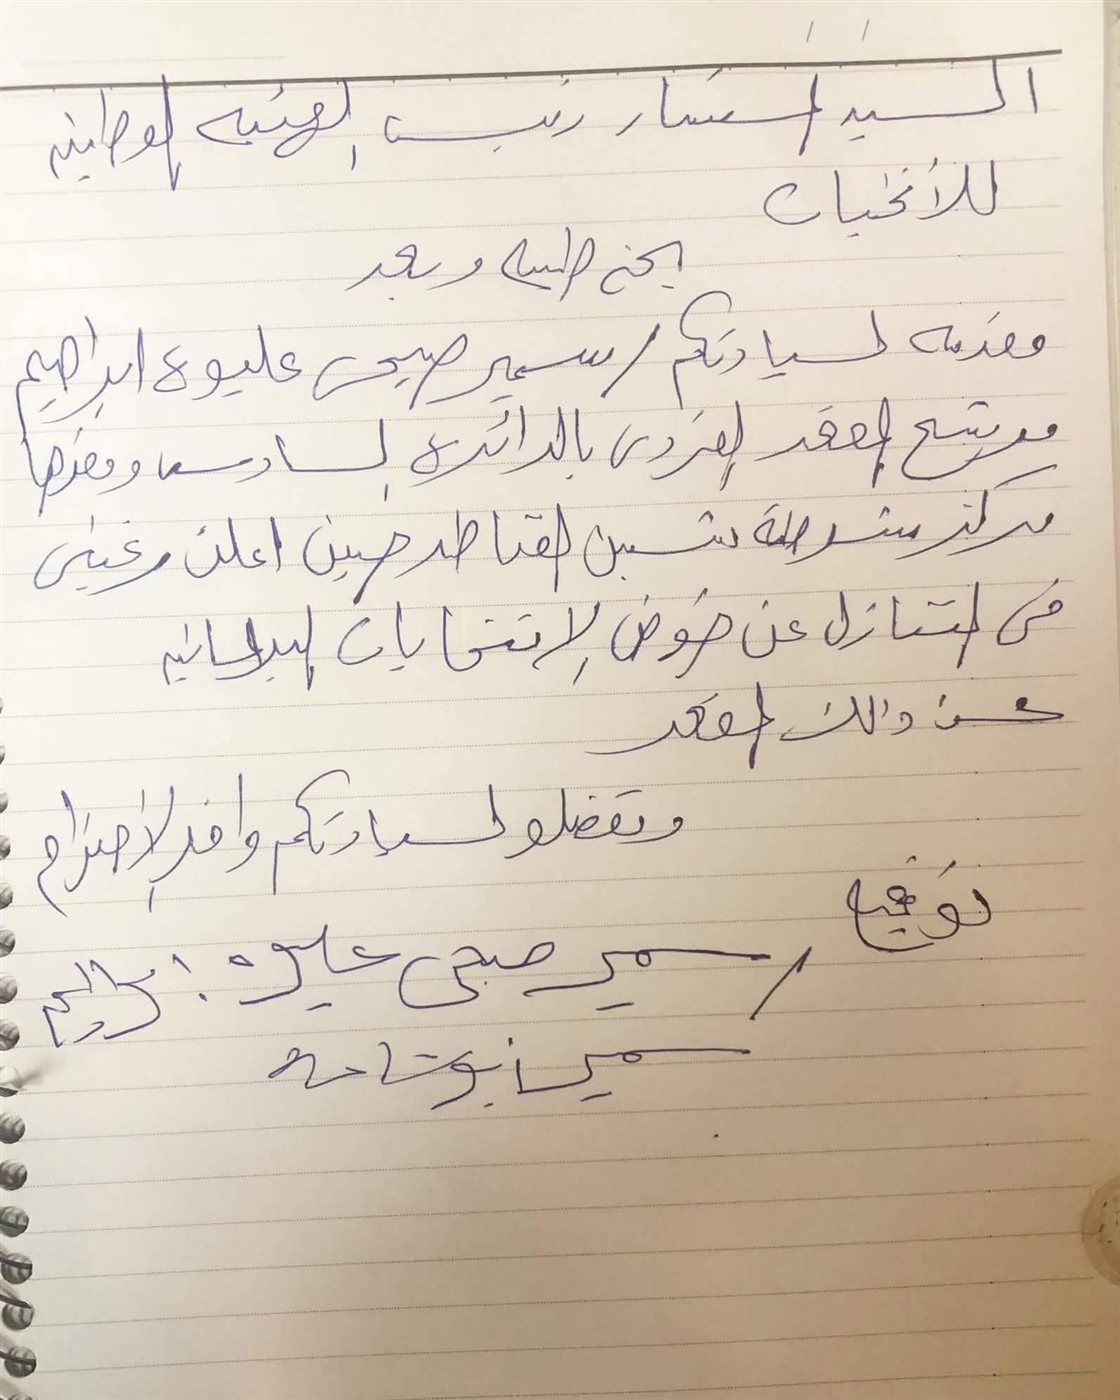 السيد المستشار رئيس الهيئه الوطنيه
للأنتخبات
تحيه طيبه وبعد
مقدمه لسيادتكم / سمير صبحى عليوة ابراهيم
مرشح المقعد الفردى بالدائرة السادسه ومقرها
مركز شرطة شبين القناطر حيث اعلن رغبتى
فى التنازل عن خوض الانتخابات البرلمانيه
عن ذالك المقعد
وتفضلو لسيادتكم وافر الاحترام
توقيع
/ سمير صبحى عليوه ابراهيم
سمير ابوشامه